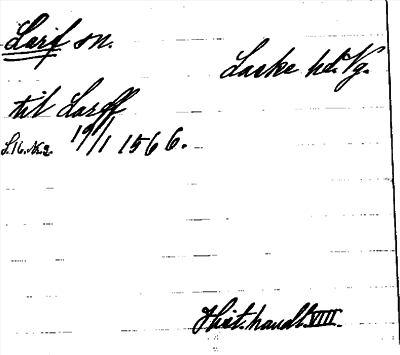 Larf sn.
Laske hd. Vg.
til Larff
S.16. Nr.2. 19/1 1566.
Hist. handl. VIII.